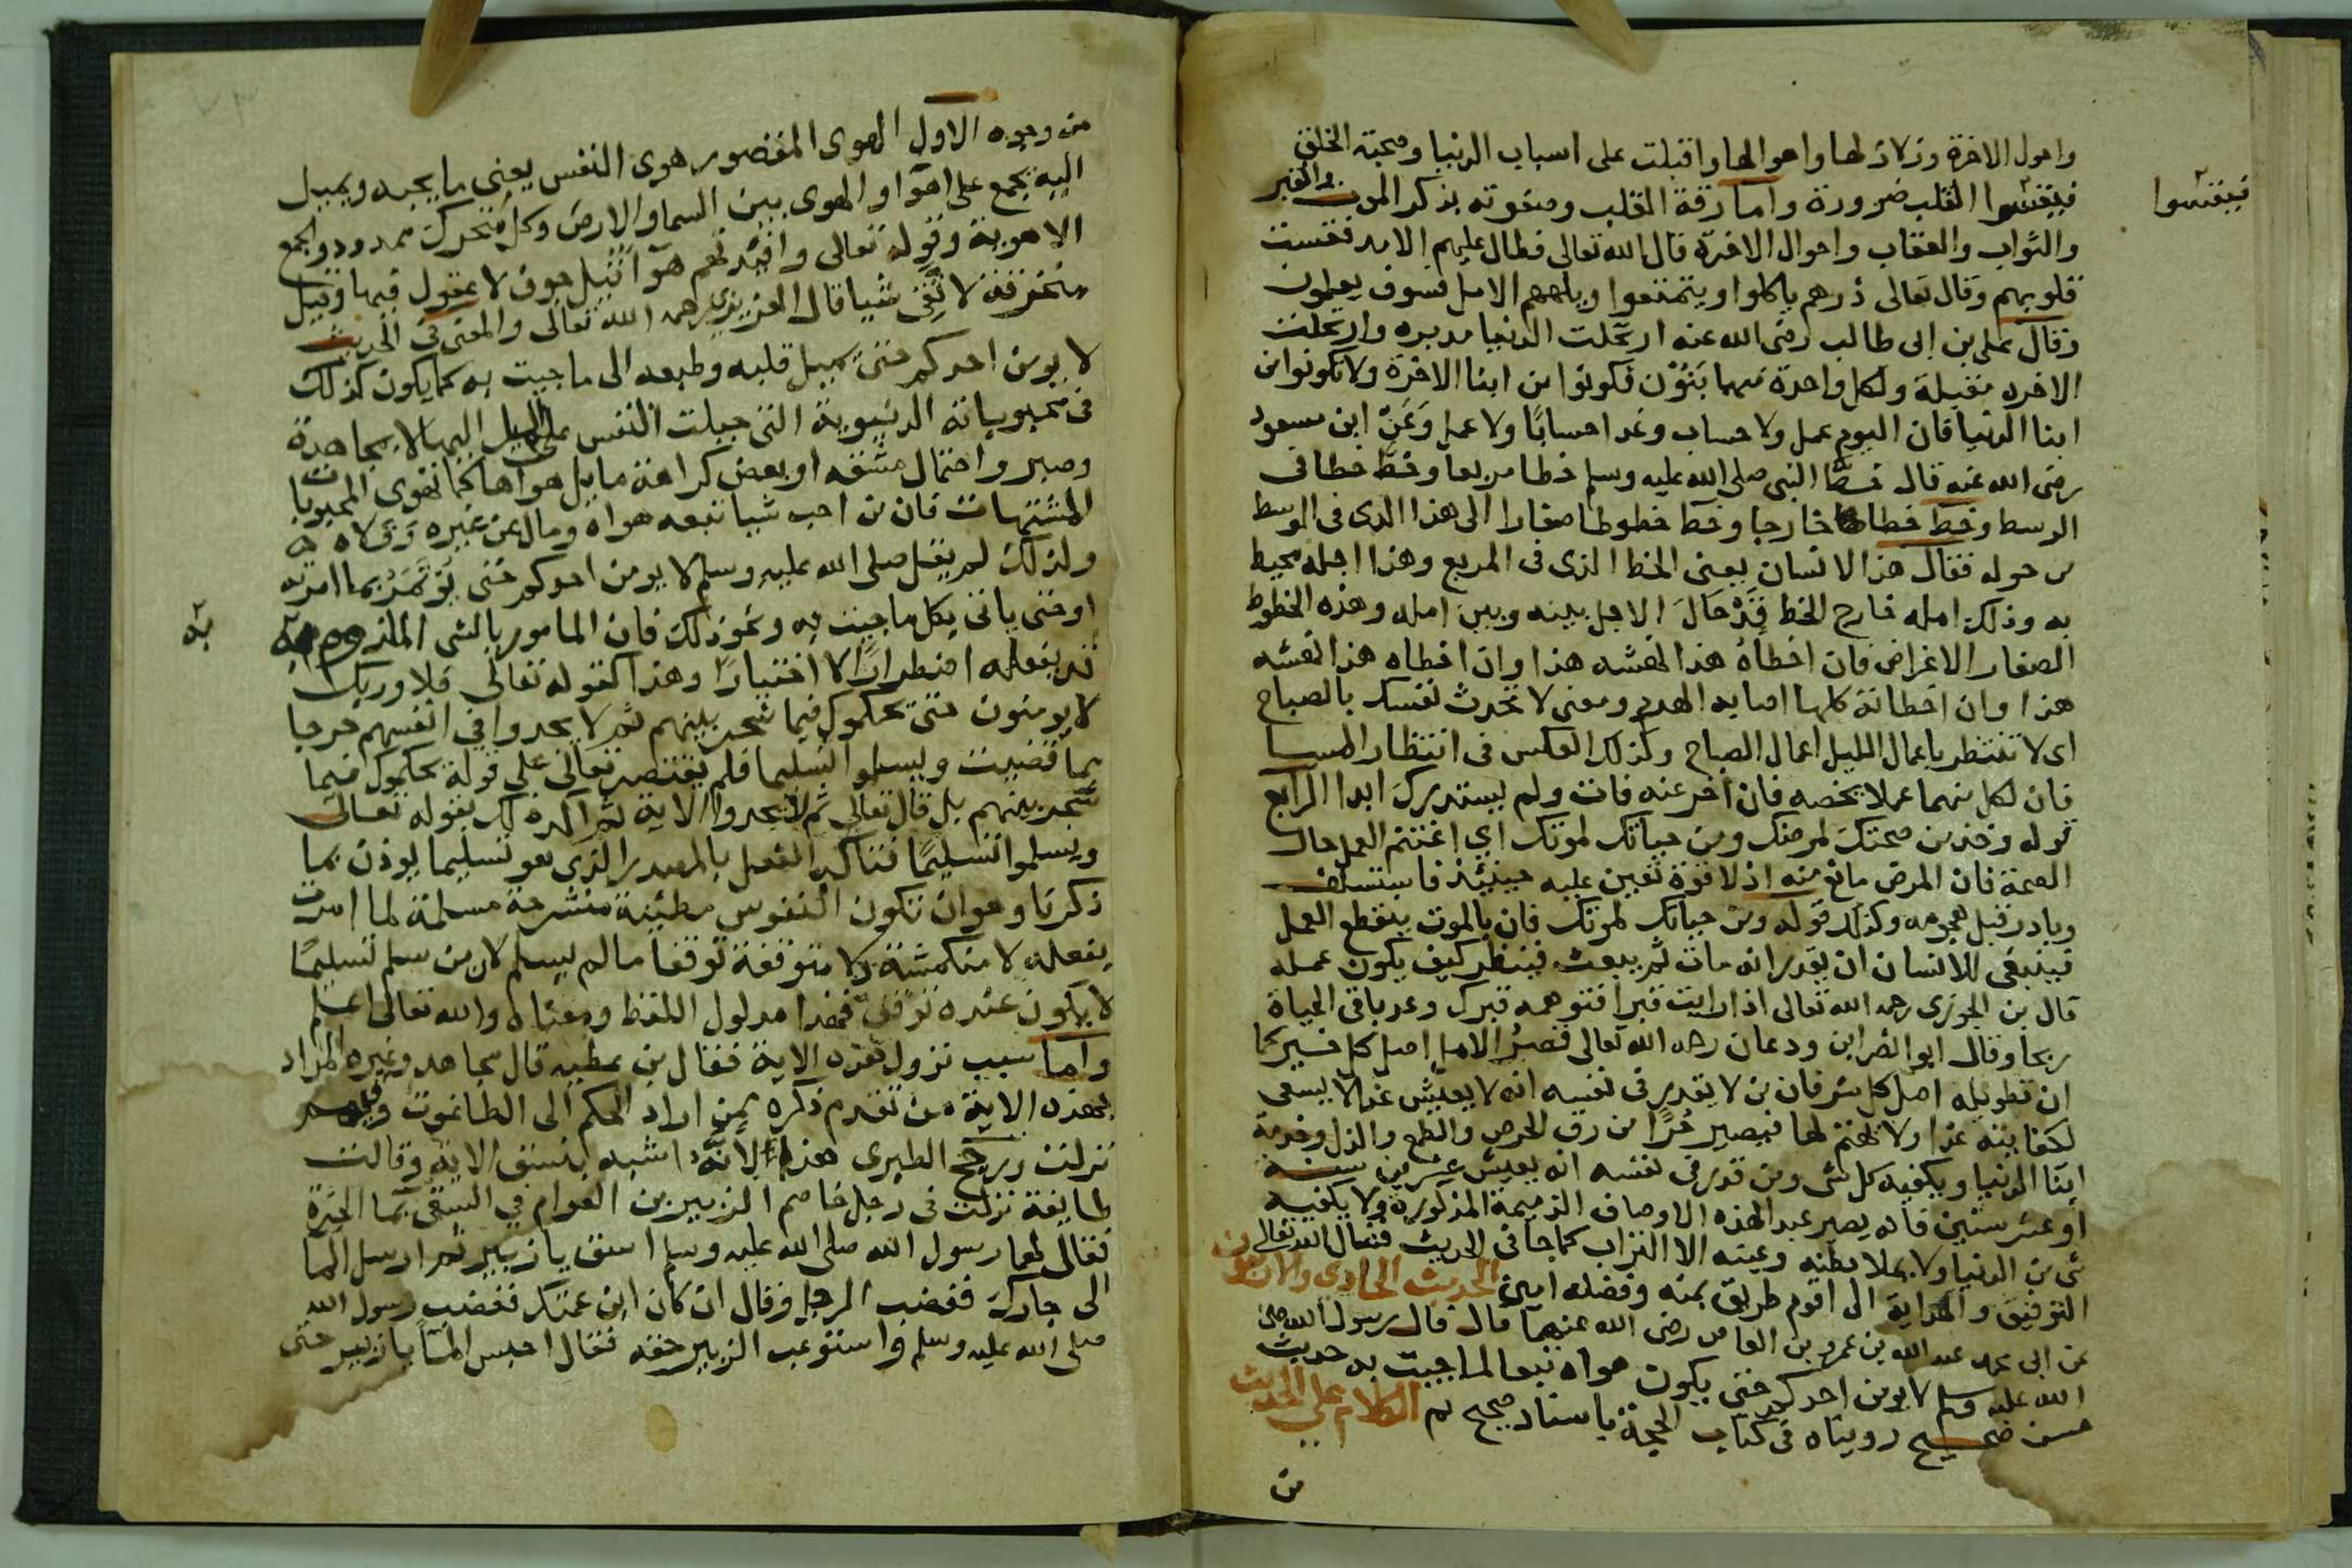 واهول الاخرة وزلازلها واهوالها واقبلت على اسباب الدنيا ومحبة الخلق
فيقسوا
فيقسوا القلب ضرورة واما رقة القلب وصفوته بذكر الموت والقبر
والثواب والعقاب واحوال الاخرة قال الله تعالى فطال عليهم الامد فقست
قلوبهم وقال تعالى ذرهم ياكلوا ويتمتعوا ويلههم الامل فسوف يعلمون
وقال على بن ابى طالب رضى الله عنه ارتحلت الدنيا مدبره وارتحلت
الاخره مقبلة ولكل واحدة منهما بنون فكونوا من ابنا الاخرة ولا تكونوا من
ابنا الدنيا فان اليوم عمل ولا حساب وغدا حسابًا ولا عمل وعن ابن مسعود
رضى الله عنه قال خط النبى صلى الله عليه وسلم خطا مربعا وخط خطا فى
الوسط وخط خطا خارجا وخط خطوطا صغارا الى هذا الذى فى الوسط
من حوله فقال هذا الانسان يعنى الخط الذى فى المربع وهذا اجله محيط
به وذلك امله خارج الخط قد حال الاجل بينه وبين امله وهذه الخطوط
الصغار الاغراض فان اخطاه هذا نهشه هذا وان اخطاه هذا نهشه
هذا وان اخطاته كلها اصابه الهرم ومعنى لا تحدث نفسك بالصباح
اى لا تنتظر باعمال الليل اعمال الصباح وكذلك العكس فى انتظار المسا
فان لكل منهما عملا يخصه فان اخر عنه فات ولم يستدرك ابدا الرابع
قوله وخذ من صحتك لمرضك ومن حياتك لموتك اي اغتنم العمل حال
الصحة فان المرض مانع منه اذ لا قوة تعين عليه حينئذ فاستسلف
وبادر قبل هجومه وكذلك قوله ومن حياتك لموتك فان بالموت ينقطع العمل
فينبغى للانسان ان يقدر انه مات ثم يبعث فينظر كيف يكون عمله
قال بن الجوزى رحمه الله تعالى اذا رايت قبرا فتوهمه قبرك وعد باقى الحياة
ربحا وقال ابو النصر ابن ودعان رحمه الله تعالى قصر الامل اصل كل خير كما
ان تطويله اصل كل شر فان من لا يقدر فى نفسه انه لا يعيش غدا لا يسعى
لكفايته غدا ولا يهتم لها فيصير حُرًا من رق الحرص والطمع والذل وخدمة
ابنا الدنيا ويكفيه كل شى ومن قدر فى نفسه انه يعيش عشرين سنة
او عشر سنين فانه يصير عبد الهذه الاوصاف الذميمة المذكورة ولا يكفيه
شى من الدنيا ولا يملا بطنه وعينه الا التراب كما جا فى الحديث فنسال الله تعالى
التوفيق والهداية الى اقوم طريق بمنه وفضله امين الحديث الحادى والاربعون
عن ابى محمد عبد الله بن عمرو بن العاص رضى الله عنهما قال قال رسول الله صلى
الله عليه وسلم لا يومن احدكم حتى يكون هواه تبعا لما جيت به حديث
حسن صحيح رويناه فى كتاب الحجة باسناد صحيح ثم الكلام على الحديث
من
من وجوه الاول الهوى المقصور هوى النفس يعنى ما يحبه ويميل
اليه يجمع على اهوا والهوى بين السما والارض وكل متحرك ممدود ويجمع
الاهوية وقوله تعالى وافئدتهم هوآ قيل جوف لا عقول فيها وقيل
منخرقة لا تعى شيا قال العزيزى رحمه الله تعالى والمعنى فى الحديث
لا يومن احدكم حتى يميل قلبه وطبعه الى ما جيت به كما يكون كذلك
فى محبوباته الدنيوية التى جبلت النفس على الميل اليها لا بمجاهدة
وصبر واحتمال مشقه او بعض كراهة ما بل هواها كما تهوى المحبوبات
المشتهيات فان من احب شيا تبعه هواه ومال عن غيره
ولذلك لم يقل صلى الله عليه وسلم لا يومن احدكم حتى يؤتمر بما امر به
به
او حتى ياتى بكل ما جيت به ونحو ذلك فان المامور بالشى الملزوم به
قد يفعله اضطرارًا لا اختيارًا وهذا كقوله تعالى فلا وربك
لا يومنون حتى يحكموك فيما شجر بينهم ثم لا يجدوا في انفسهم حرجا
مما قضيت ويسلموا تسليما فلم يقتصر تعالى على قوله يحكموك فيما
شجر بينهم بل قال تعالى ثم لا يجدوا الاية ثم اكد ذلك بقوله تعالى
ويسلموا تسليمًا فتاكيد الفعل بالمصدر الذى هو تسليما يوذن بما
ذكرنا وهو ان تكون النفوس مطئنة منشرحة مسلمة لما امرت
بفعله لا منكمشة ولا متوقفة توقفا ما لم يسلم لان من سلم تسليمًا
لا يكون عنده توقف فهذا مدلول اللفظ ومعناه والله تعالى اعلم
واما سبب نزول هذه الاية فقال بن عطيه قال مجاهد وغيره المراد
بهذه الاية من تقدم ذكره ممن اراد الحكم الى الطاغوت وفيهم
نزلت ورجح الطبرى هذا لانه اشبه بنسق الاية وقالت
طايفة نزلت فى رجل خاصم الزبير بن العوام في السقى بما الحرة
فقال لهما رسول الله صلى الله عليه وسلم اسق يا زبير ثم ارسل الما
الى جارك فغضب الرجل وقال ان كان ابن عمتك فغضب رسول الله
صلى الله عليه وسلم واستوعب الزبير حقه فقال احبس الما يا زبير حتى